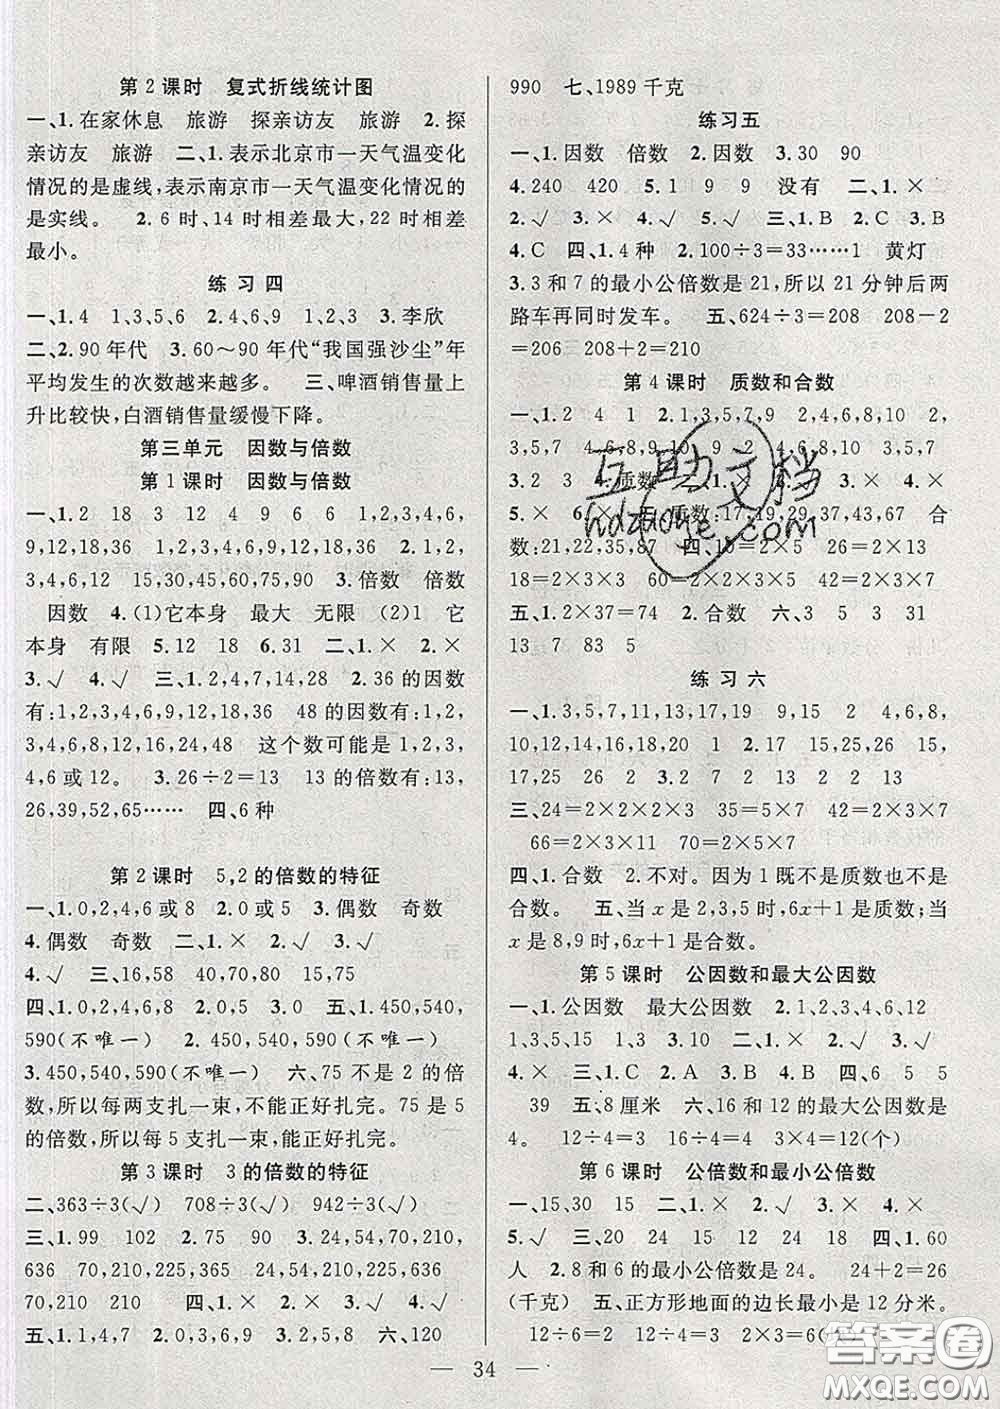 第2课时 复式折线统计图
一、1.在家休息 旅游 探亲访友 旅游 2.探
亲访友 旅游 二、1.表示北京市一天气温变化
情况的是虚线,表示南京市一天气温变化情况的
是实线。 2.6时、14时相差最大,22时相差
最小。
练习四
一、1.4 1,3,5,6 2.4,6,9 1,2,3 3.李欣
二、2.90年代 3.60～90年代“我国强沙尘”年
平均发生的次数越来越多。 三、啤酒销售量上
升比较快,白酒销售量缓慢下降。
第三单元 因数与倍数
第1课时 因数与倍数
一、1.2 18 3 12 4 9 6 6 1,2,3,4,6,
9,12,18,36 1,2,3,4,6,9,12,18,36 2.1,2,
3,4,6,12 15,30,45,60,75,90 3.倍数 倍数
因数 4.(1)它本身 最大 无限 (2)1 它
本身 有限 5.12 18 6.31 二、1.× 2.×
3.√ 4.√ 三、1.1,2,4,7,14,28 2.36的因数
有:1,2,3,4,6,9,12,18,36 48的因数有:1,2,
3,4,6,8,12,16,24,48 这个数可能是1,2,3,
4,6或12。 3.26÷2=13 13的倍数有:13,
26,39,52,65…… 四、6种
第2课时 5,2的倍数的特征
一、1.0,2,4,6或8 2.0或5 3.偶数 奇数
4.偶数 奇数 二、1.× 2.√ 3.√
4.√ 三、16,58 40,70,80 15,75
四、1.0,2,4,6,8 2.0,5 五、1.450,540,
590(不唯一) 2.450,540,590(不唯一)
3.450,540,590(不唯一) 六、75不是2的倍
数,所以每两支扎一束,不能正好扎完。75是5
的倍数,所以每5支扎一束,能正好扎完。
第3课时 3的倍数的特征
二、363÷3(√) 708÷3(√) 942÷3(√)
三、1.99 102 2.75 90 3.24,54,70,210,
636 70,210,225,365 24,54,210,225,636
70,210 210 四、1.× 2.√ 3.√ 4.√
五、1.1,4,7 2.0,3,6,9 3.2,5,8 六、120
990 七、1989千克
练习五
一、1.因数 倍数 2.因数 3.30 90
4.240 420 5.1 9 9 没有 二、1.×
2.√ 3.× 4.√ 5.√ 三、1.B 2.C 3.B
4.C 四、1.4种 2.100÷3=33……1 黄灯
3.3和7的最小公倍数是21,所以21分钟后两
路车再同时发车。 五、624÷3=208 208-2
=206 208+2=210
第4课时 质数和合数
一、1.2 4 1 2.1,3,5,7,9 2,4,6,8,10 2,
3,5,7 4,6,8,9,10 9 2 4,6,8,10
3.2 3 4.质数 二、1.× 2.× 3.× 4.×
5.× 6.× 三、质数:17,19,29,37,43,67 合
数:21,22,35,87 四、10=2×5 26=2×13
18=2×3×3 60=2×2×3×5 42=2×3×7
五、1.2×37=74 2.合数 六、3 5 3 31
13 7 83 5
练习六
一、1.3,5,7,11,13,17,19 9,15 2 4,6,8,
10,12,14,16,18,20 1 2.17,2 26,2 15,
17,25 26 2 3.2 7 2 13 2 2 2 7
三、24=2×2×2×3 35=5×7 42=2×3×7
66=2×3×11 70=2×5×7
四、1.合数 2.不对。因为1既不是质数也不是
合数。 五、当x是2,3,5时,6x+1是质数;当
x是8,9时,6x+1是合数。
第5课时 公因数和最大公因数
一、1.公因数 最大公因数 2.1,2,3,4,6,12
1,3,5,15 1,3 3 二、1.× 2.× 3.√
4.× 三、1.C 2.A 3.B 四、6 5 5
39 五、8厘米 六、16和12的最大公因数是
4。 12÷4=3 16÷4=4 3×4=12(个)
第6课时 公倍数和最小公倍数
一、15,30 15 二、1.× 2.× 3.× 4.×
5.√ 三、20 24 15 12 24 18 四、1.60
人 2.8和6的最小公倍数是24。 24+2=26
(千克) 五、正方形地面的边长最小是12分米。
12÷6=2 12÷4=3 2×3=6(块)
— 34 —
互助文档
hdzuoye.com
答案圈
MXQE.COM